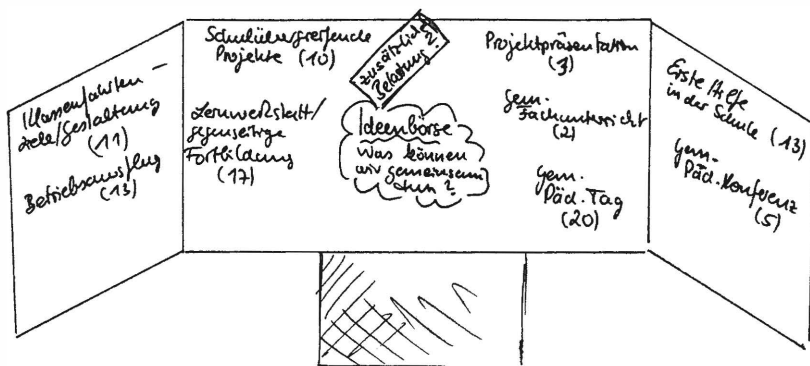 Klassenfahrten -
ziele/Gestaltung
(11)
Betriebsausflug
(13)
Schulübergreifende
Projekte (10)
Lernwerkstatt/
gegenseitige
Fortbildung
(17)
zusätzliche
Belastung?
Ideenbörse
Was können
wir gemeinsam
tun?
Projektpräsentation
(3)
gem.
Fachunterricht
(2)
gem.
Päd. Tag
(20)
Erste Hilfe
in der Schule (13)
gem.
Päd. Konferenz
(5)